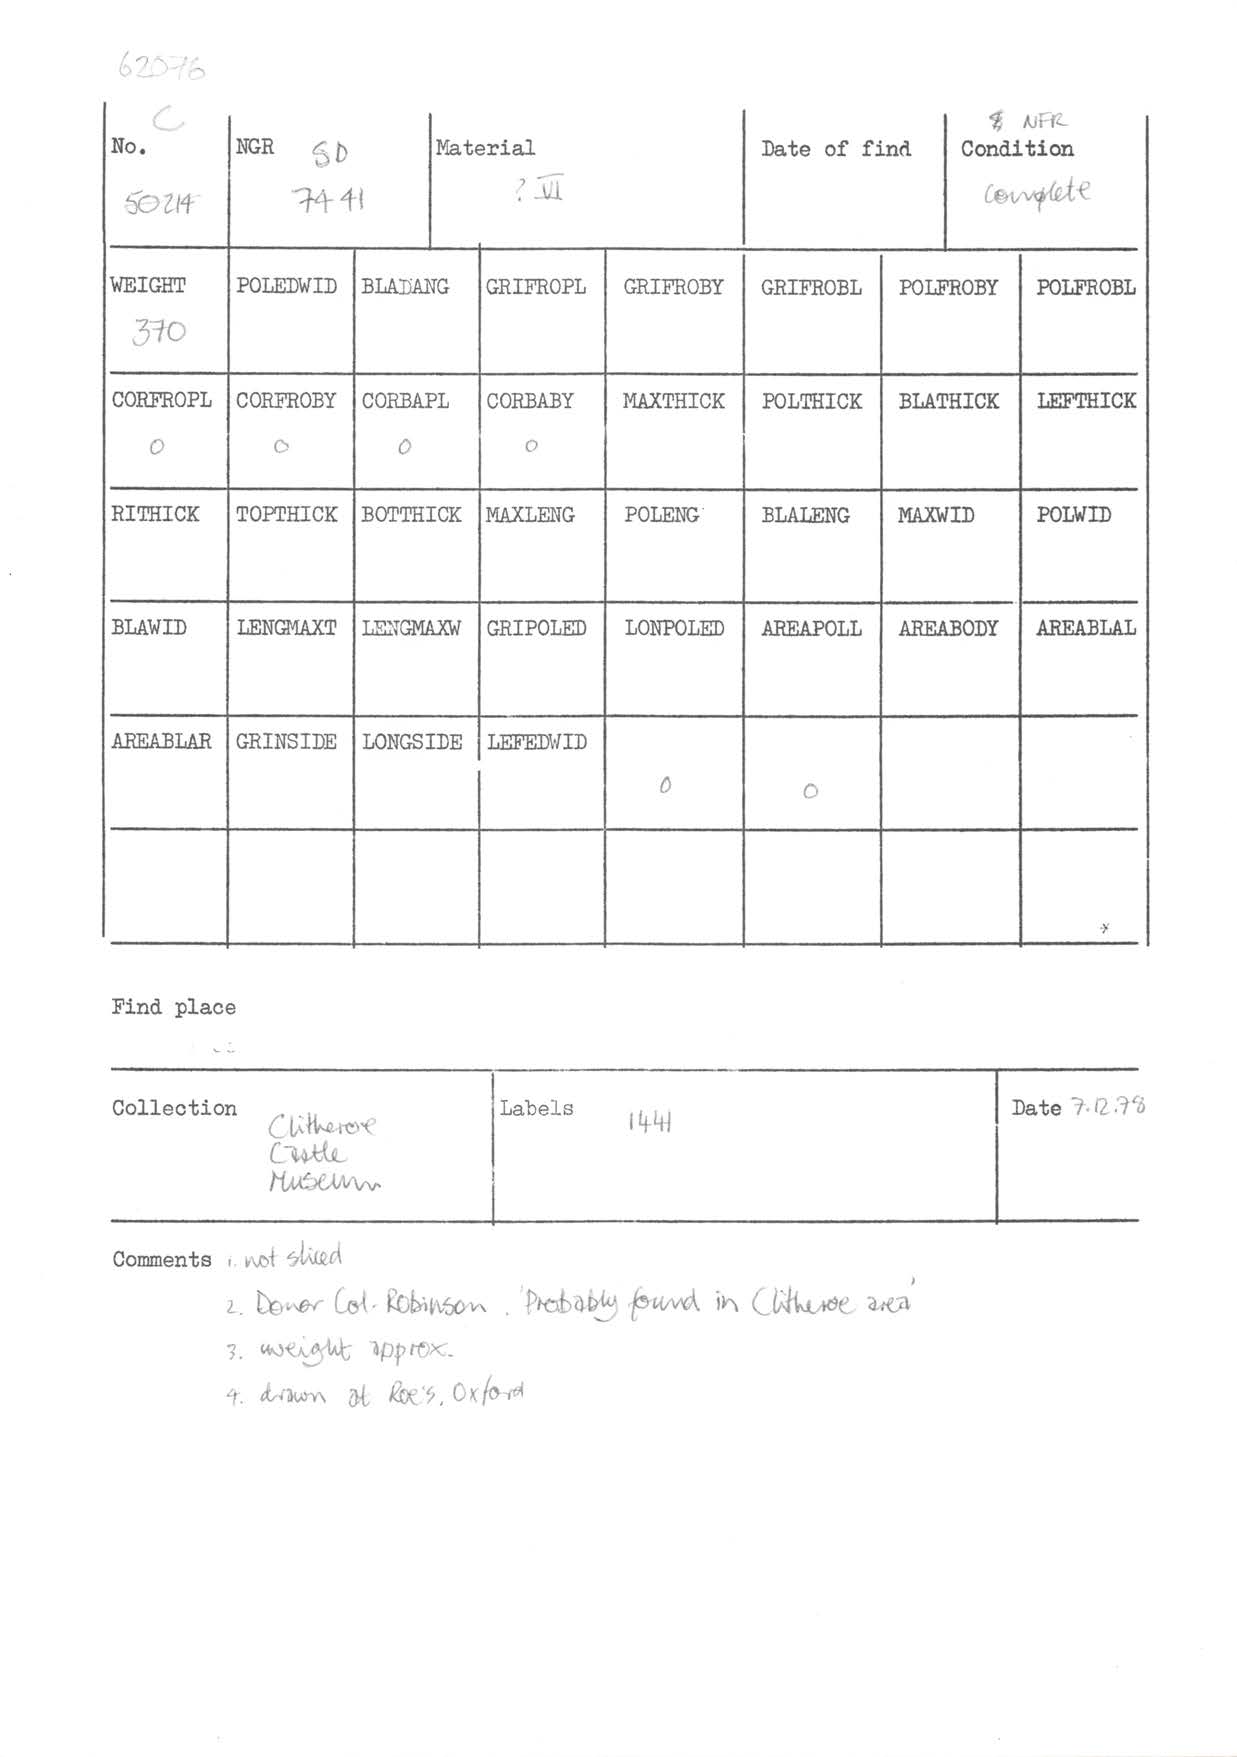 62076
C NFR
No. NGR SD Material Date of find Condition
50214 7441 ? VI complete
WEIGHT POLEDWID BLADANG GRIFROPL GRIFROBY GRIFROBL POLFROBY POLFROBL
370
CORFROPL CORFROBY CORBAPL CORBABY MAXTHICK POLTHICK BLATHICK LEFTHICK
0 0 0 0
RITHICK TOPTHICK BOTTHICK MAXLENG POLENG BLALENG MAXWID POLWID
BLAWID LENGMAXT LENGMAXW GRIPOLED LONPOLED AREAPOLL AREABODY AREABLAL
AREABLAR GRINSIDE LONGSIDE LEFEDWID
0 0
*
Find place
Collection Labels 1441 Date 7.12.78
Clitheroe
Castle
Museum
Comments 1. not sliced
2. Donor Col. Robinson. 'Probably found in Clitheroe area'
3. weight approx.
4. drawn at Roe's, Oxford